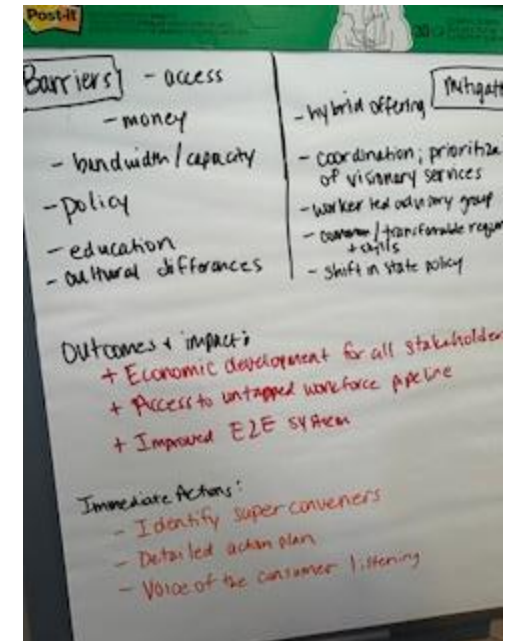 Post-it
Barriers
- access
- money
- bandwidth/capacity
- policy
- education
- cultural differences
Mitigat
- hybrid offering
- coordination; prioritiza
of visionary services
- worker led advisory group
- common/transferable requi
+ skills
- shift in state policy
Outcomes + impact:
+ Economic development for all stakeholder
+ Access to untapped workforce pipeline
+ Improved E2E system
Immediate Actions:
- Identify super conveners
- Detailed action plan
- Voice of the consumer listening